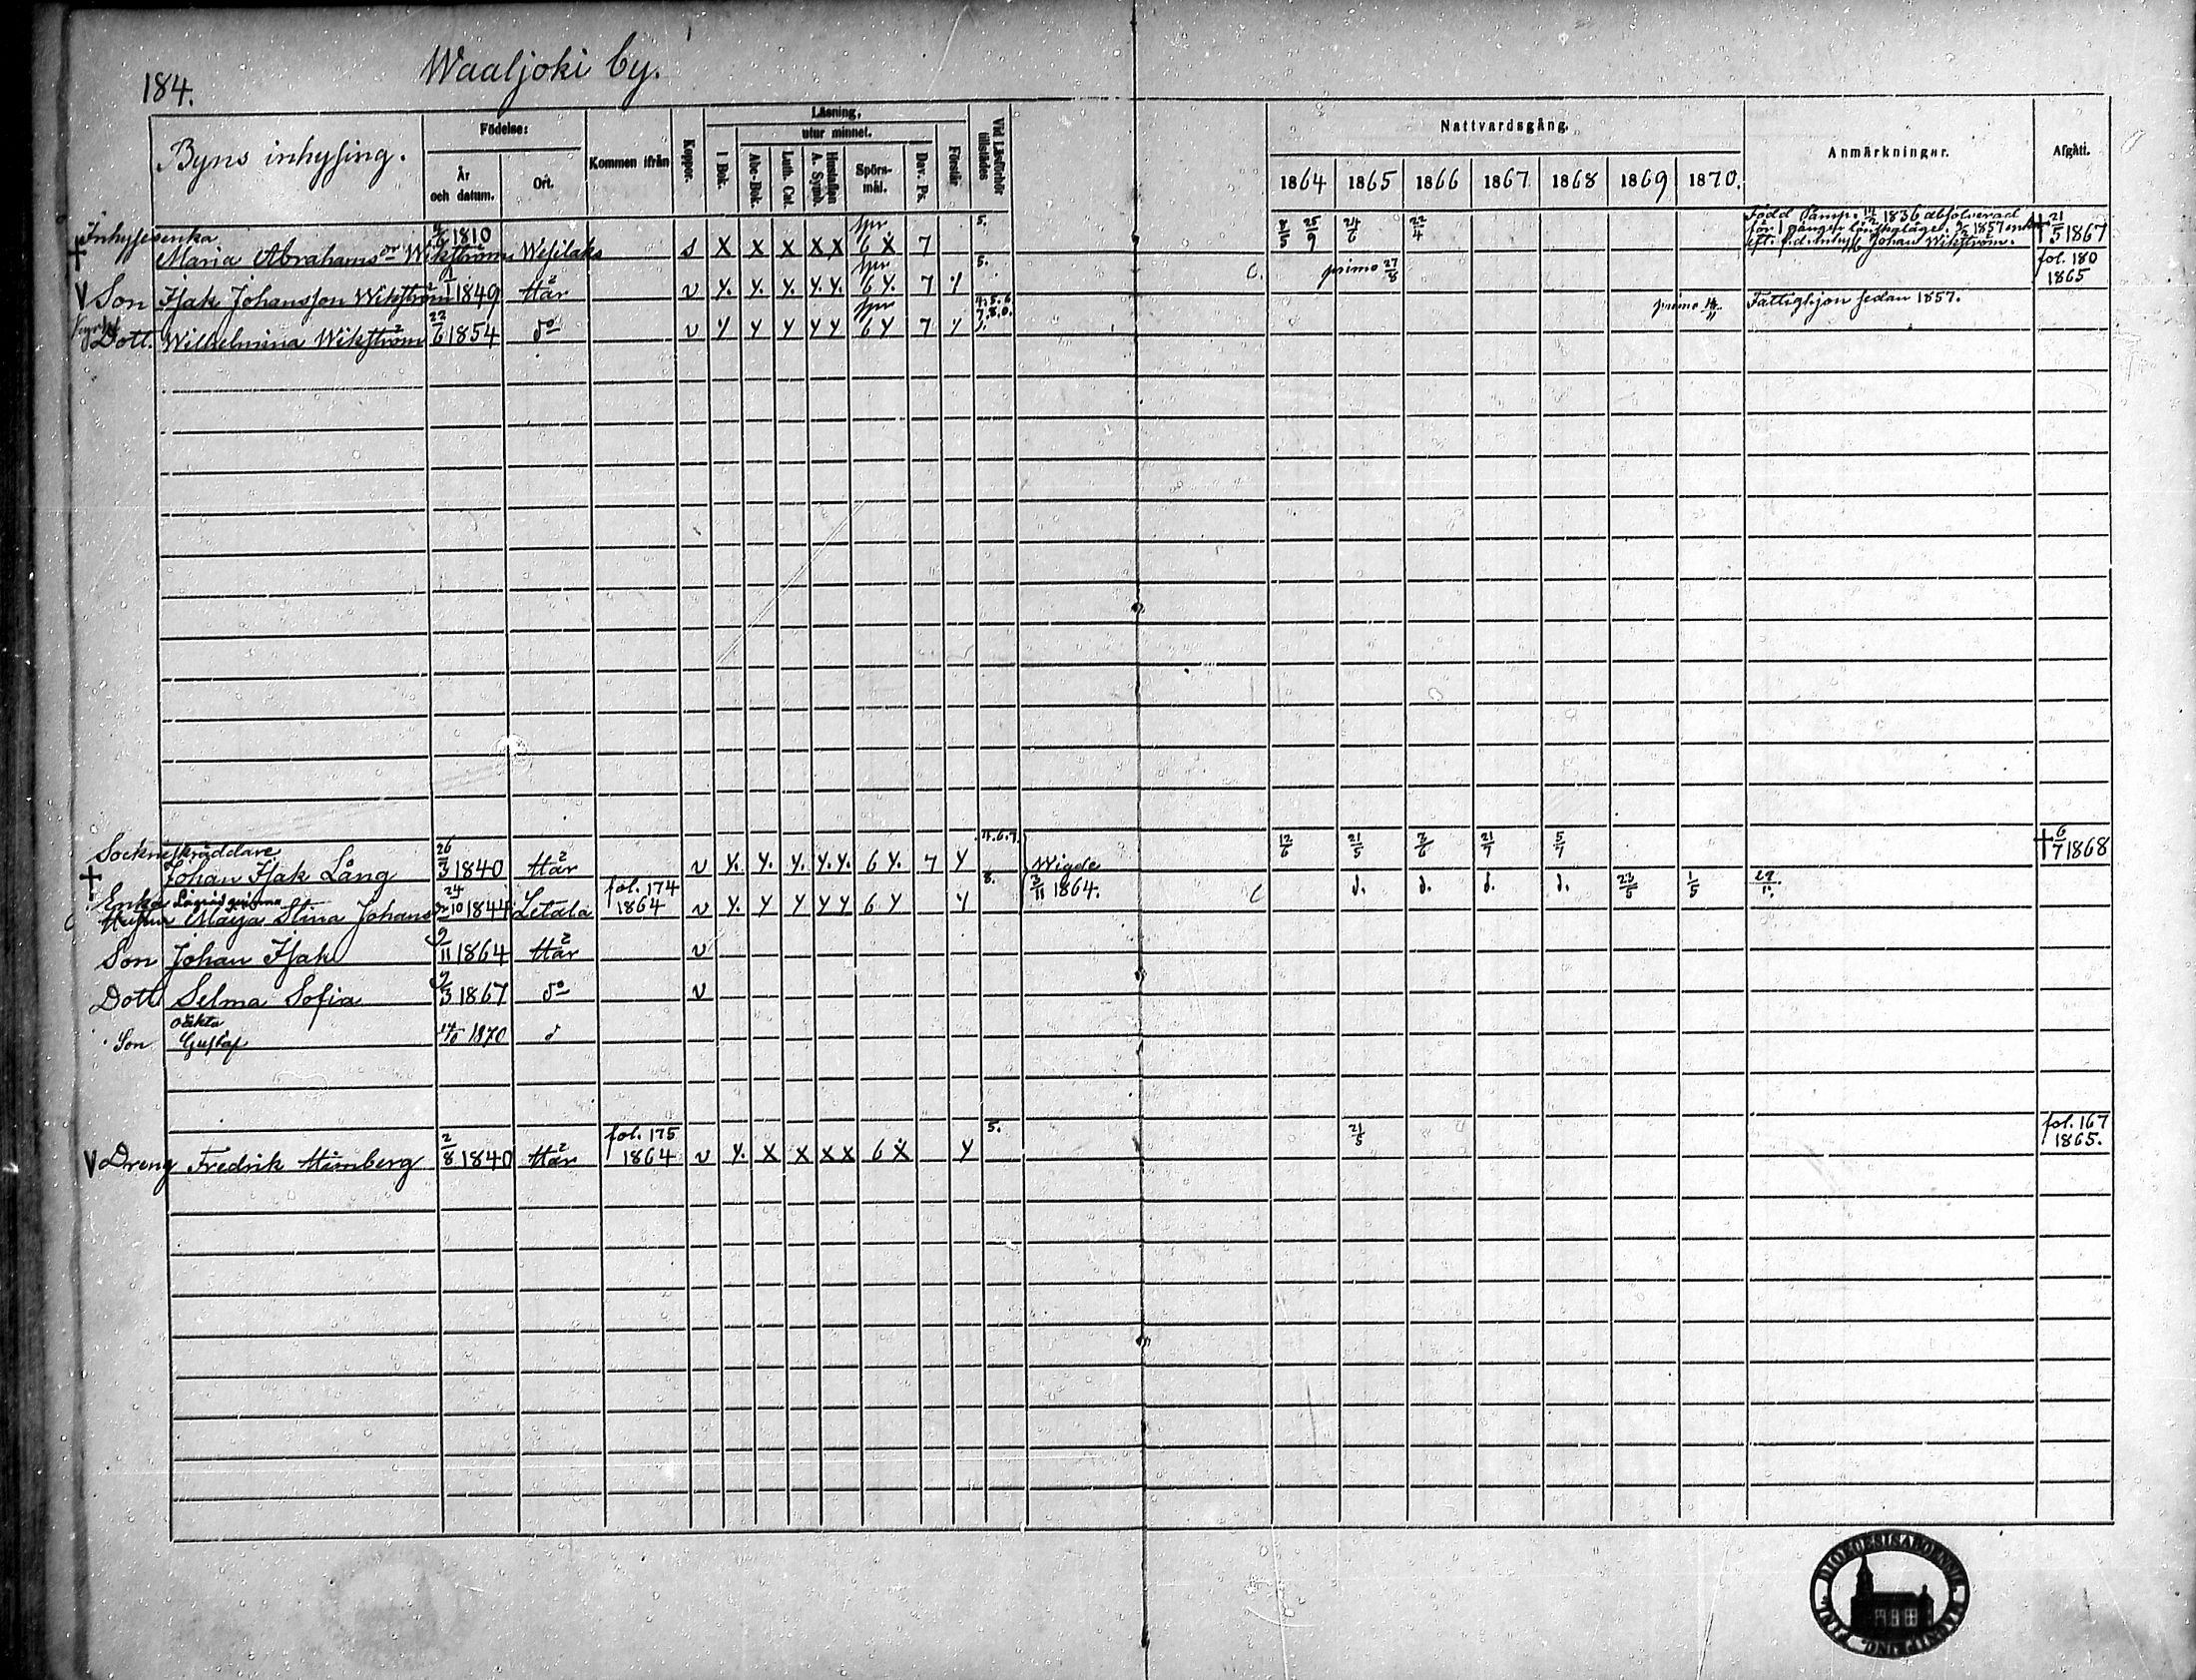 184.
Waaljoki by.
Byns inhysing.
Födelse:
År och datum.
Ort.
Kommen ifrån
Koppor.
Läsning,
utur minnet.
I Bok.
Abc-Bok.
Luth. Cat.
Hustaflan A. Symb.
Spörsmål.
Dav. Ps.
Förstår
Vid Läsförhör tillstädes
Nattvardsgång.
1864 1865 1866 1867 1868 1869 1870.
Anmärkningar.
Afgått.
Inhysesenka
Maria Abrahamsdr Wikström 1810 Wesilaks s X X X X X spr 6 X 7 5. 25/9 24/6 22/4 † 21/5 1867
1836 absolverad
för 1 gången 1857 enka
eft. Johan Wikström.
V Son Isak Johansson Wikström 1849 Här v Y. Y. Y. Y. Y. spr 6 Y. 7 Y 5. C. primo 27/8 fol. 180 1865
Dott. Wilhelmina Wikström 22/6 1854 do v Y Y Y Y Y spr 6 Y 7 Y 4.5.6. 7.8.0. primo Fattighjon sedan 1857.
Sockneskräddare
† Johan Isak Lång 26/3 1840 Här v Y. Y. Y. Y. Y. 6 Y. 7 Y 4.6.7. Wigde 12/6 21/5 7/6 21/7 5/7 † 6/7 1868
Enka
Hustru Maija Stina Johansdr 24/10 1844 Letala fol. 174 1864 v Y. Y Y Y Y 6 Y Y 8. 3/11 1864. C d. d. d. d. 23/5 1/5
Son Johan Isak 9/11 1864 Här v
Dott Selma Sofia 9/3 1867 do v
oäkta
Son Gustaf 1870 d
V Dreng Fredrik Himberg 2/8 1840 Här fol. 175 1864 v Y. X X X X 6 X Y 5. 21/5 fol. 167 1865.